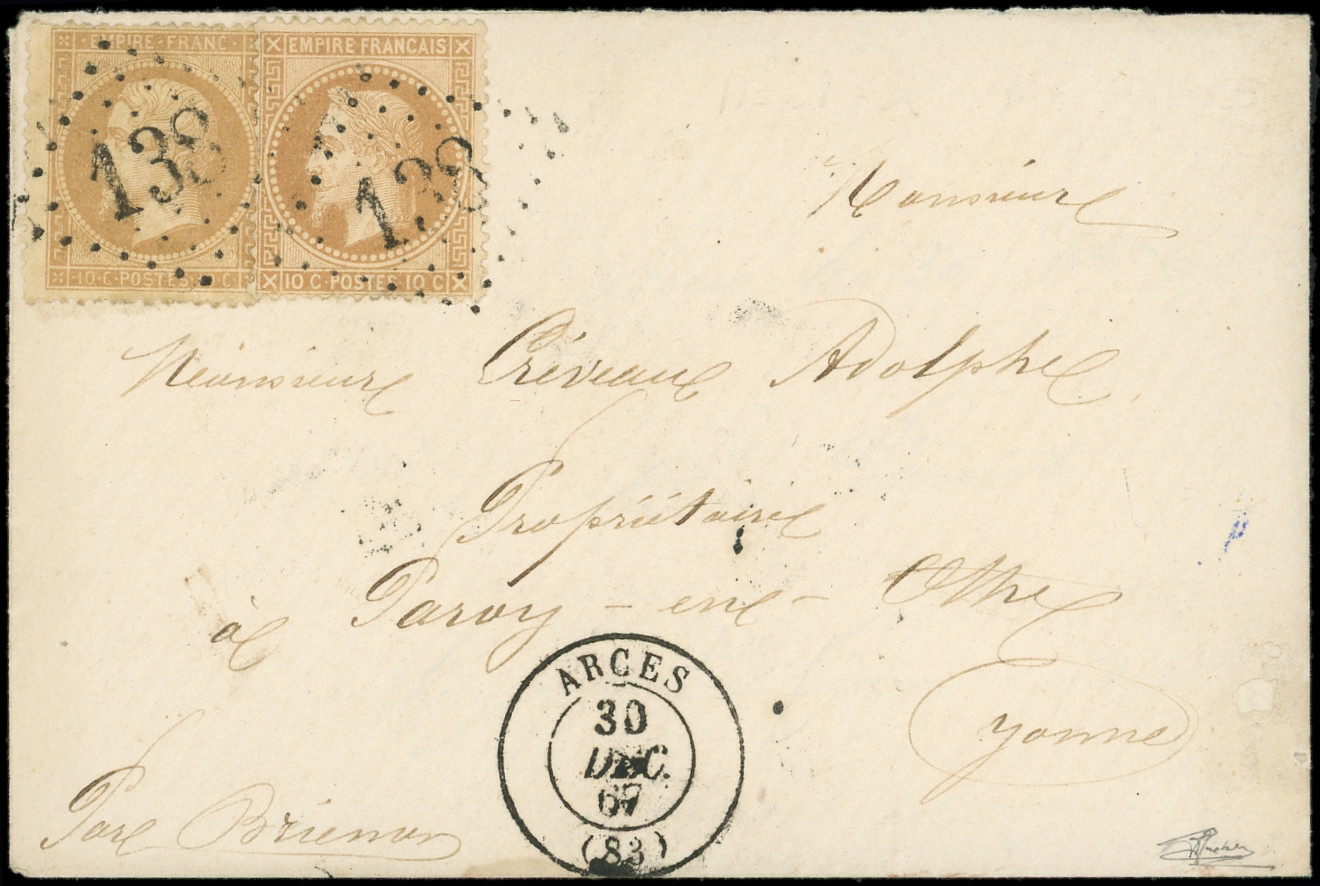 EMPIRE FRANC
EMPIRE FRANÇAIS
138
138
10 C POSTES 10 C
10 C POSTES 10 C
Monsieur
Monsieur Créveaux Adolphe
Propriétaire
à Paroy - en - Othe
Yonne
ARCES
30
DEC.
67
(83)
Par Brienon